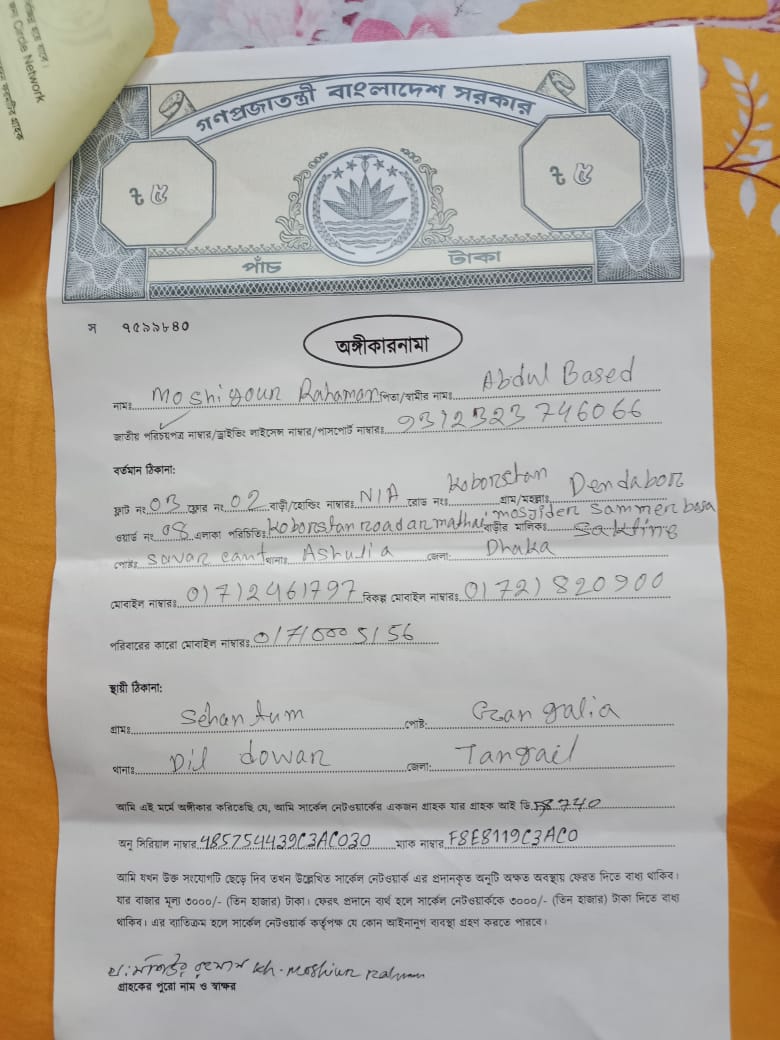 Circle Network
গণপ্রজাতন্ত্রী বাংলাদেশ সরকার
৳ ৫
৳ ৫
পাঁচ টাকা
স ৭৫৯৯৮৪০
অঙ্গীকারনামা
নামঃ Moshigour Rahaman পিতা/স্বামীর নামঃ Abdul Based
জাতীয় পরিচয়পত্র নাম্বার/ড্রাইভিং লাইসেন্স নাম্বার/পাসপোর্ট নাম্বারঃ 9312323746066
বর্তমান ঠিকানা:
ফ্লাট নং 03 ফ্লোর নং 02 বাড়ী/হোল্ডিং নাম্বারঃ N/A রোড নংঃ Koborstan গ্রাম/মহল্লাঃ Dendabor
ওয়ার্ড নং 08 এলাকা পরিচিতিঃ Koborstan road mosjider sammer basa বাড়ীর মালিকঃ
পোষ্টঃ Savar cant থানাঃ Ashulia জেলা: Dhaka
মোবাইল নাম্বারঃ 01712461797 বিকল্প মোবাইল নাম্বারঃ 01721820900
পরিবারের কারো মোবাইল নাম্বারঃ 01710005156
স্থায়ী ঠিকানা:
গ্রামঃ Sehantum পোষ্ট: Gangalia
থানাঃ Dil dowar জেলা: Tangail
আমি এই মর্মে অঙ্গীকার করিতেছি যে, আমি সার্কেল নেটওয়ার্কের একজন গ্রাহক যার গ্রাহক আই ডি. 740
অনু সিরিয়াল নাম্বার 485754439C3AC030 ম্যাক নাম্বার F8E8119C3AC0
আমি যখন উক্ত সংযোগটি ছেড়ে দিব তখন উল্লেখিত সার্কেল নেটওয়ার্ক এর প্রদানকৃত অনুটি অক্ষত অবস্থায় ফেরত দিতে বাধ্য থাকিব।
যার বাজার মূল্য ৩০০০/- (তিন হাজার) টাকা। ফেরৎ প্রদানে ব্যর্থ হলে সার্কেল নেটওয়ার্ককে ৩০০০/- (তিন হাজার) টাকা দিতে বাধ্য
থাকিব। এর ব্যতিক্রম হলে সার্কেল নেটওয়ার্ক কর্তৃপক্ষ যে কোন আইনানুগ ব্যবস্থা গ্রহণ করতে পারবে।
Kh. Moshiur Rahman
গ্রাহকের পুরো নাম ও স্বাক্ষর